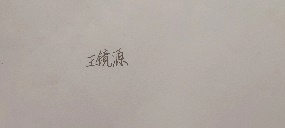 王镜源